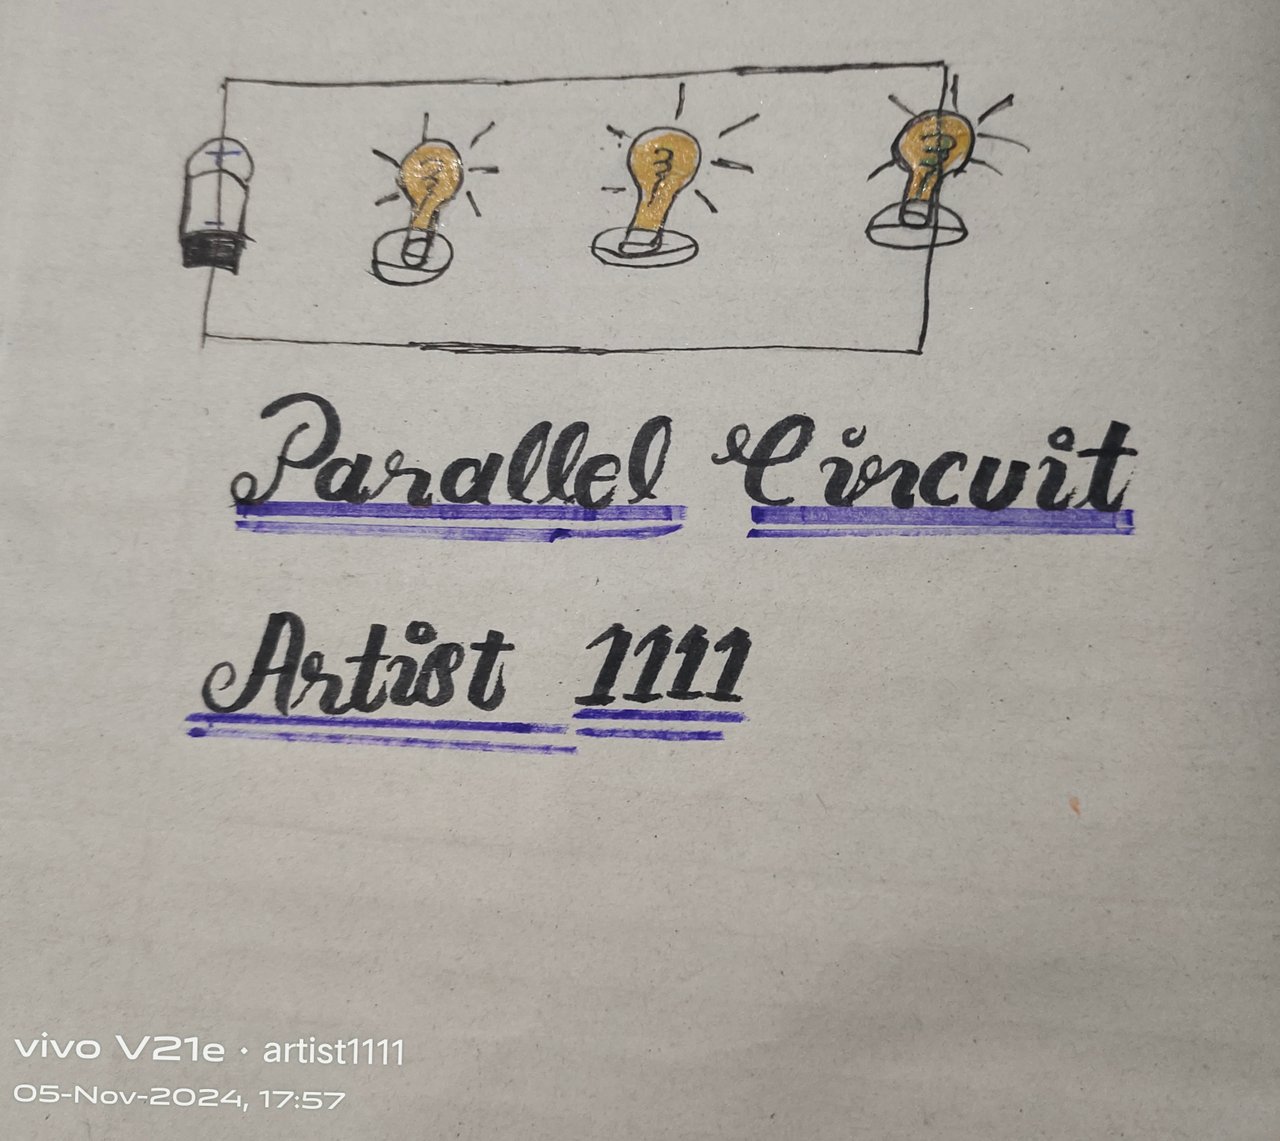 Parallel Circuit
Artist 1111
vivo V21e · artist1111
05-Nov-2024, 17:57